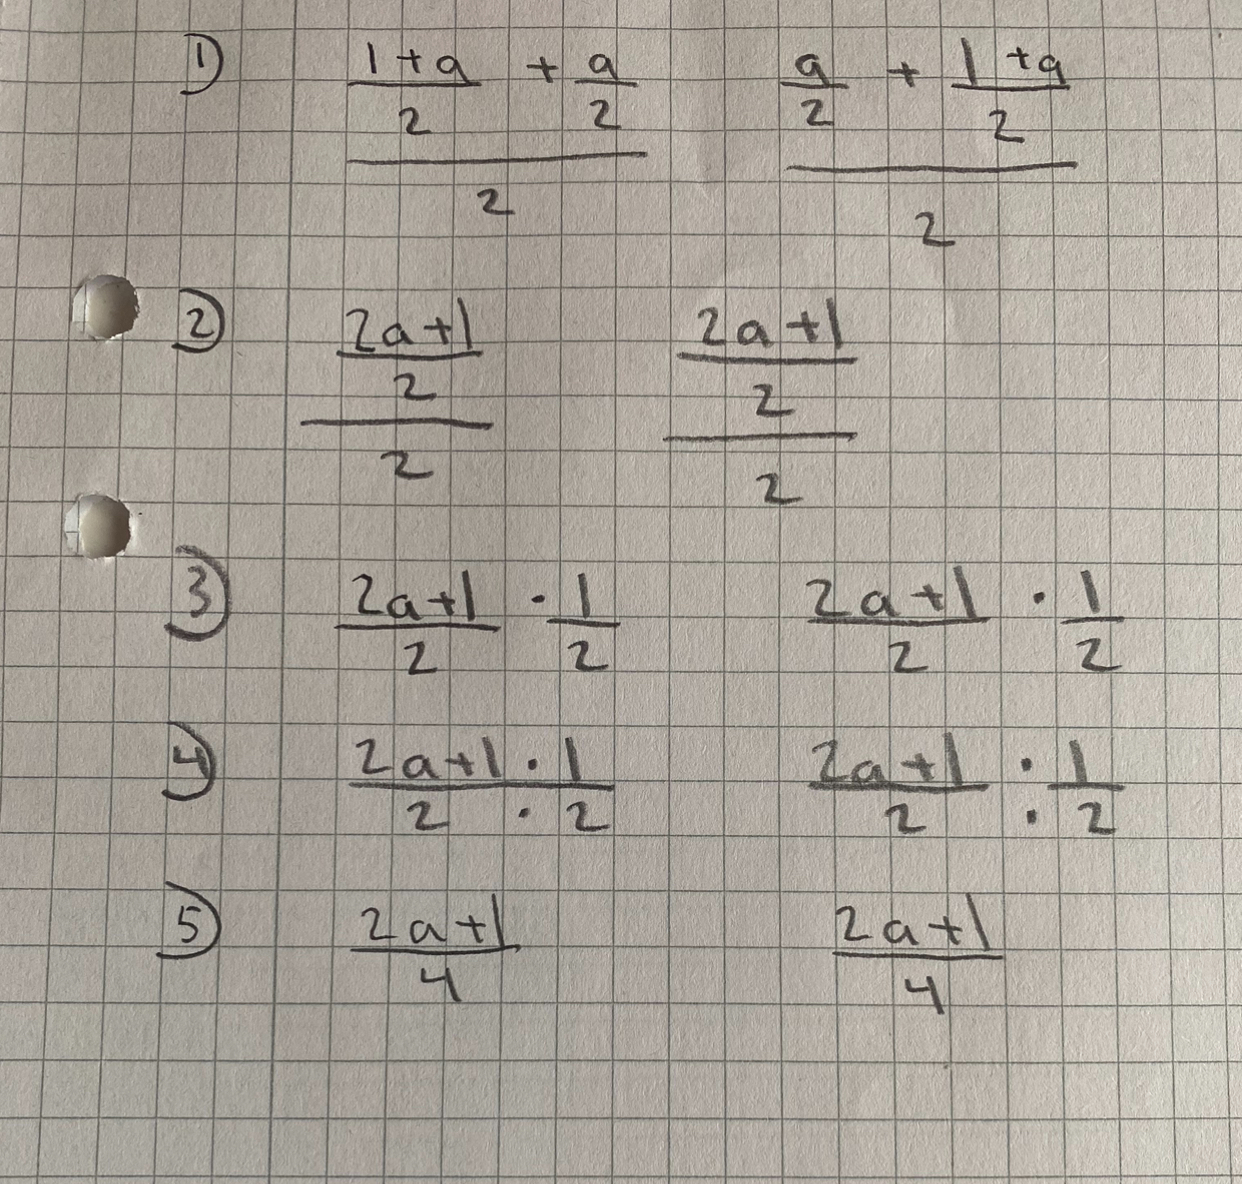 1) ((1+a)/2 + a/2)/2    (a/2 + (1+a)/2)/2
2) ((2a+1)/2)/2    ((2a+1)/2)/2
3) (2a+1)/2 · 1/2    (2a+1)/2 · 1/2
4) (2a+1 · 1)/(2 · 2)    (2a+1)/2 · 1/2
5) (2a+1)/4    (2a+1)/4